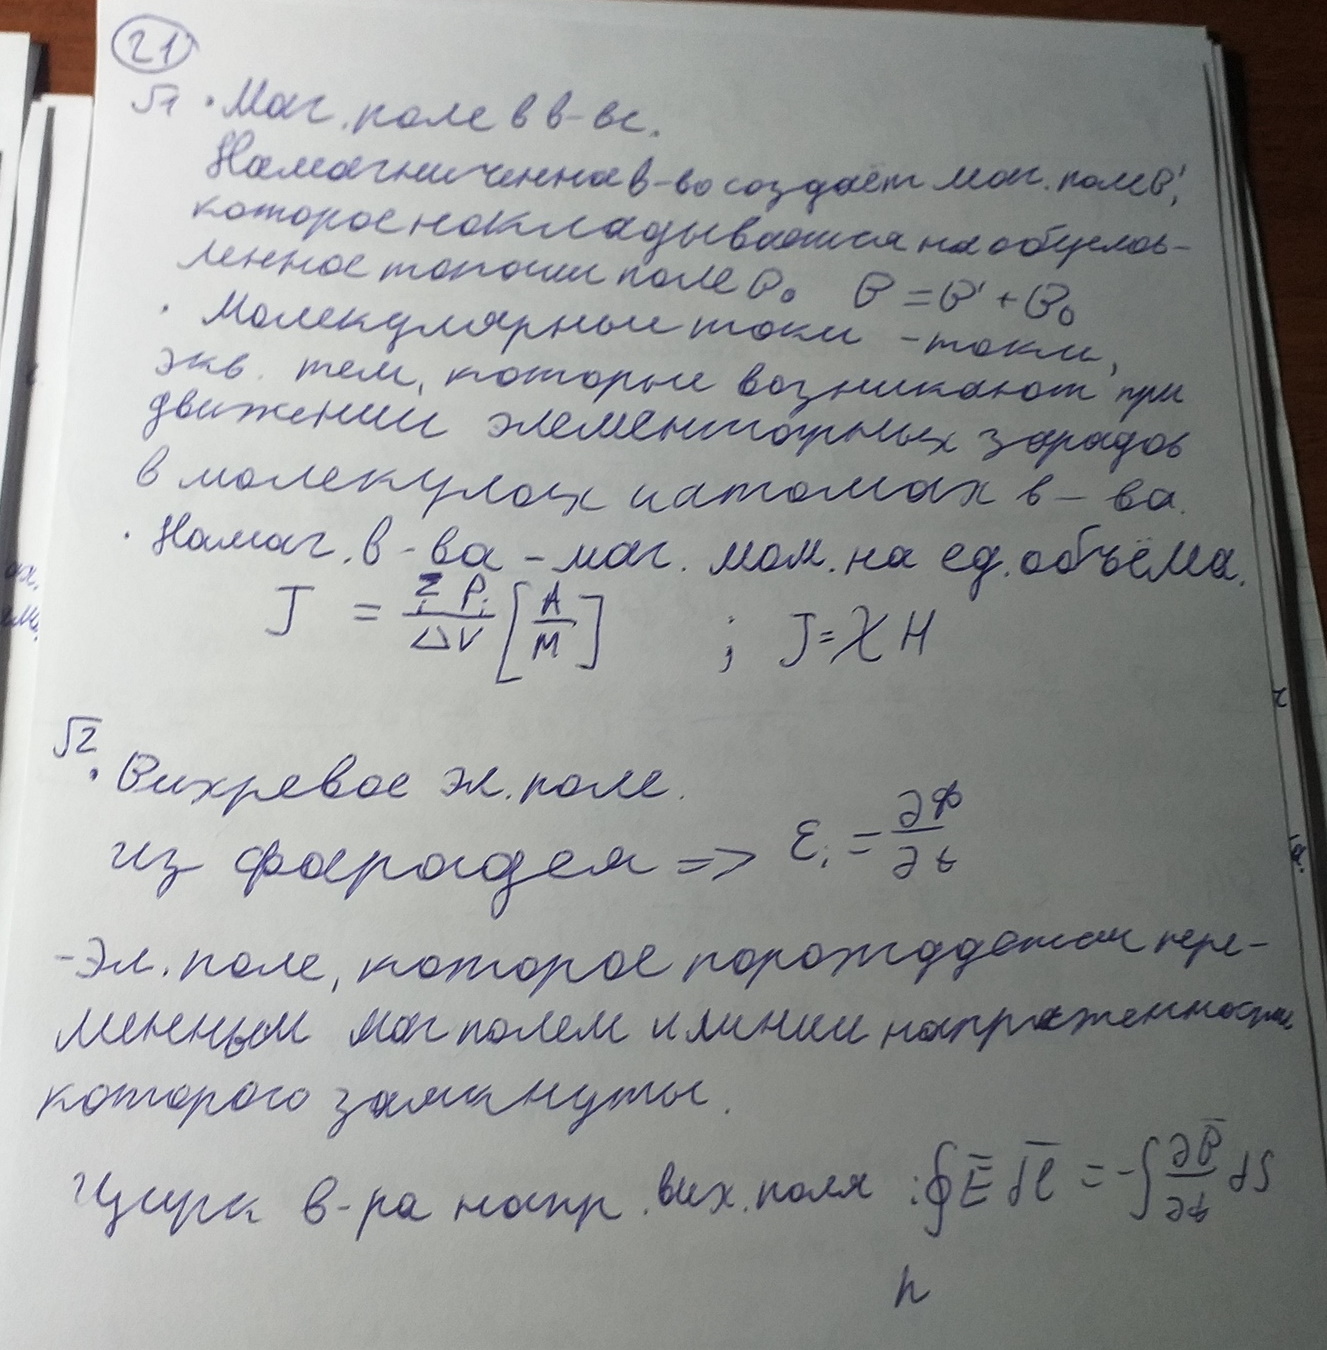 21
√1 · Маг. поле в в-ве.
Намагниченна в-во создаёт маг. поле B',
которое накладывается на обуслов-
ленное токами поле B₀ B = B' + B₀
· Молекулярные токи - токи,
экв. тем, которые возникают при
движении элементарных зарядов
в молекулах и атомах в-ва.
· Намаг. в-ва - маг. мом. на ед. объёма.
J = Σ Pᵢ / ΔV [А/м] ; J = χ H
√2
· Вихревое эл. поле.
из фарадея => εᵢ = ∂Φ/∂t
- Эл. поле, которое порождается пере-
менным маг полем и линии напряженности
которого замкнуты.
Цирк в-ра напр. вих. поля : ∮ Ē dl̄ = - ∫ ∂B̄/∂t dS